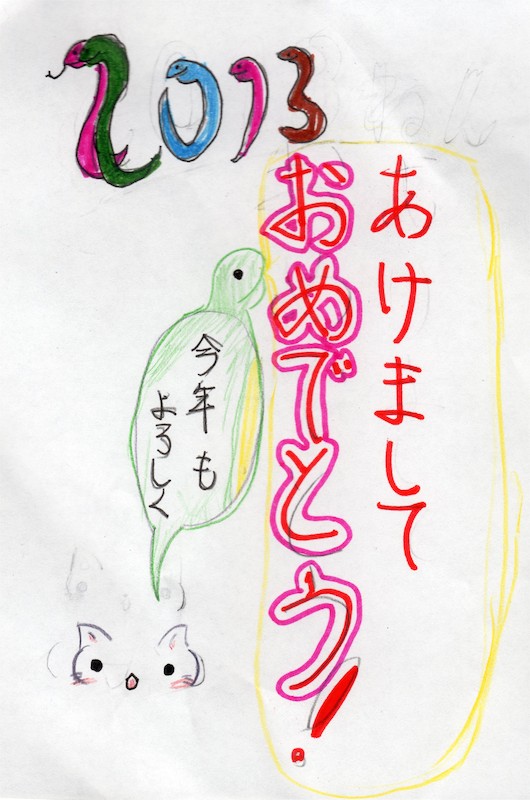 2013
あけまして
おめでとう!
今年も
よろしく